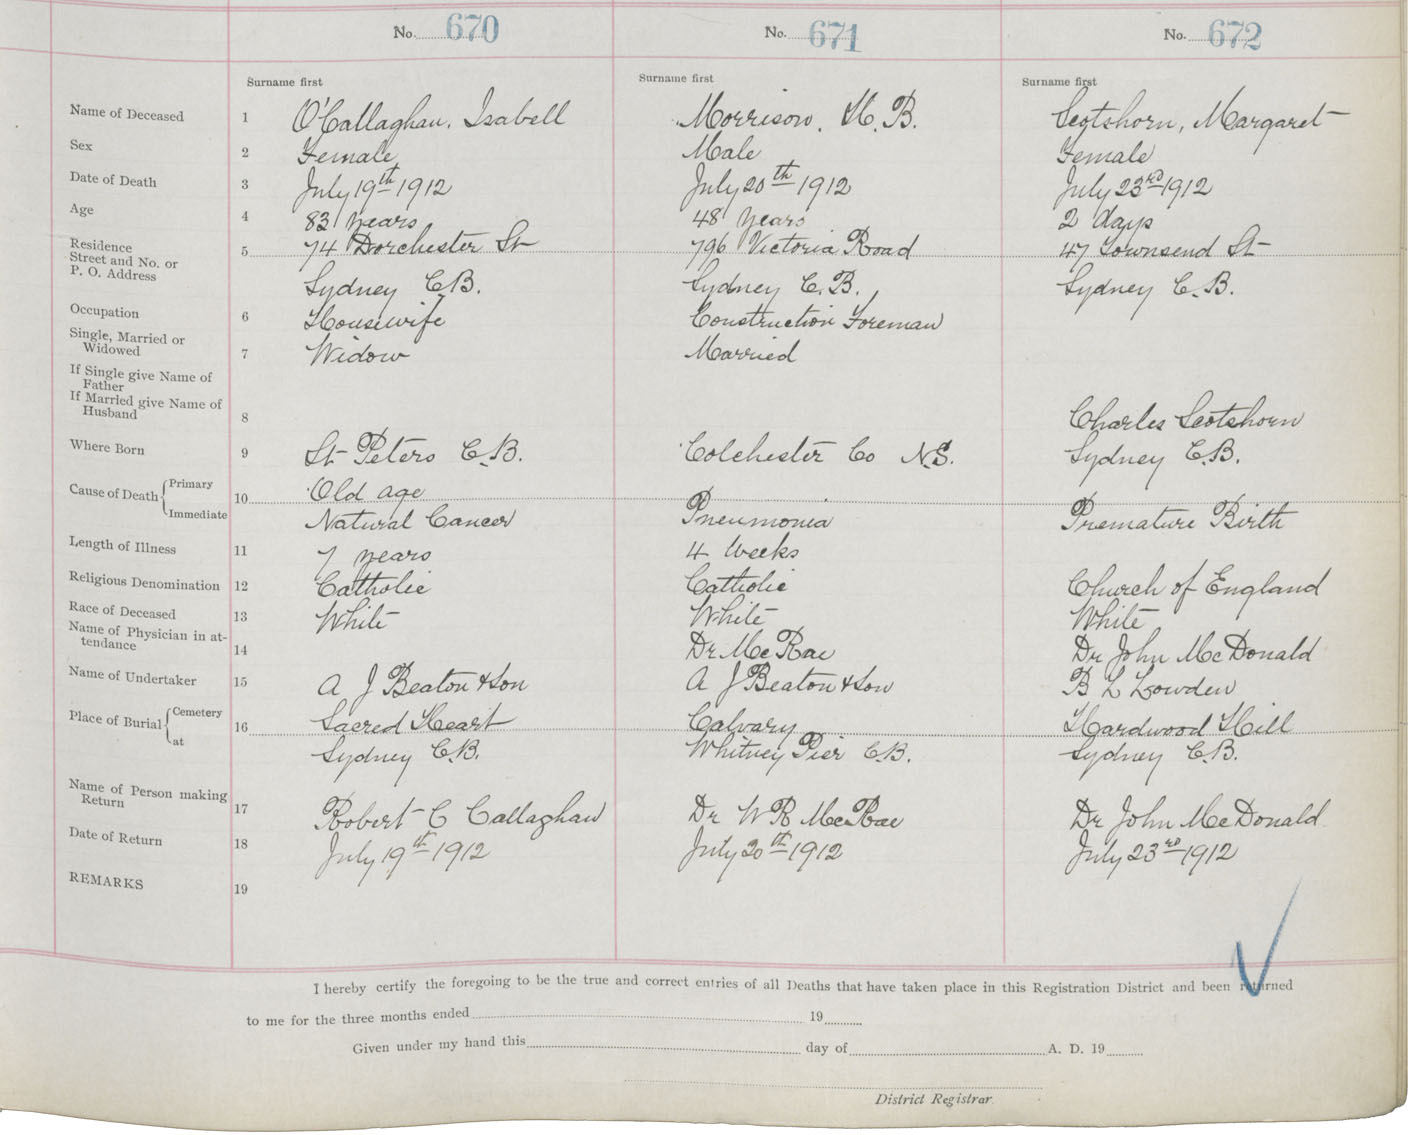 No. 670 No. 671 No. 672
Surname first Surname first Surname first
Name of Deceased 1 O'Callaghan, Isabell Morrison, H. B. Scotshorn, Margaret
Sex 2 Female Male Female
Date of Death 3 July 19th 1912 July 20th 1912 July 23rd 1912
Age 4 83 years 48 years 2 days
Residence
Street and No. or 5 74 Dorchester St 796 Victoria Road 47 Townsend St
P. O. Address Sydney C.B. Sydney C.B. Sydney C.B.
Occupation 6 Housewife Construction Foreman
Single, Married or
Widowed 7 Widow Married
If Single give Name of
Father
If Married give Name of
Husband 8 Charles Scotshorn
Where Born 9 St Peters C.B. Colchester Co N.S. Sydney C.B.
Cause of Death { Primary 10 Old age
Immediate Natural Cancer Pneumonia Premature Birth
Length of Illness 11 7 years 4 weeks
Religious Denomination 12 Catholic Catholic Church of England
Race of Deceased 13 White White White
Name of Physician in at-
tendance 14 Dr McRae Dr John McDonald
Name of Undertaker 15 A J Beaton & Son A J Beaton & Son B L Lowden
Place of Burial { Cemetery 16 Sacred Heart Calvary Hardwood Hill
at Sydney C.B. Whitney Pier C.B. Sydney C.B.
Name of Person making
Return 17 Robert C Callaghan Dr W R McRae Dr John McDonald
Date of Return 18 July 19th 1912 July 20th 1912 July 23rd 1912
REMARKS 19
I hereby certify the foregoing to be the true and correct entries of all Deaths that have taken place in this Registration District and been returned
to me for the three months ended 19
Given under my hand this day of A. D. 19
District Registrar.